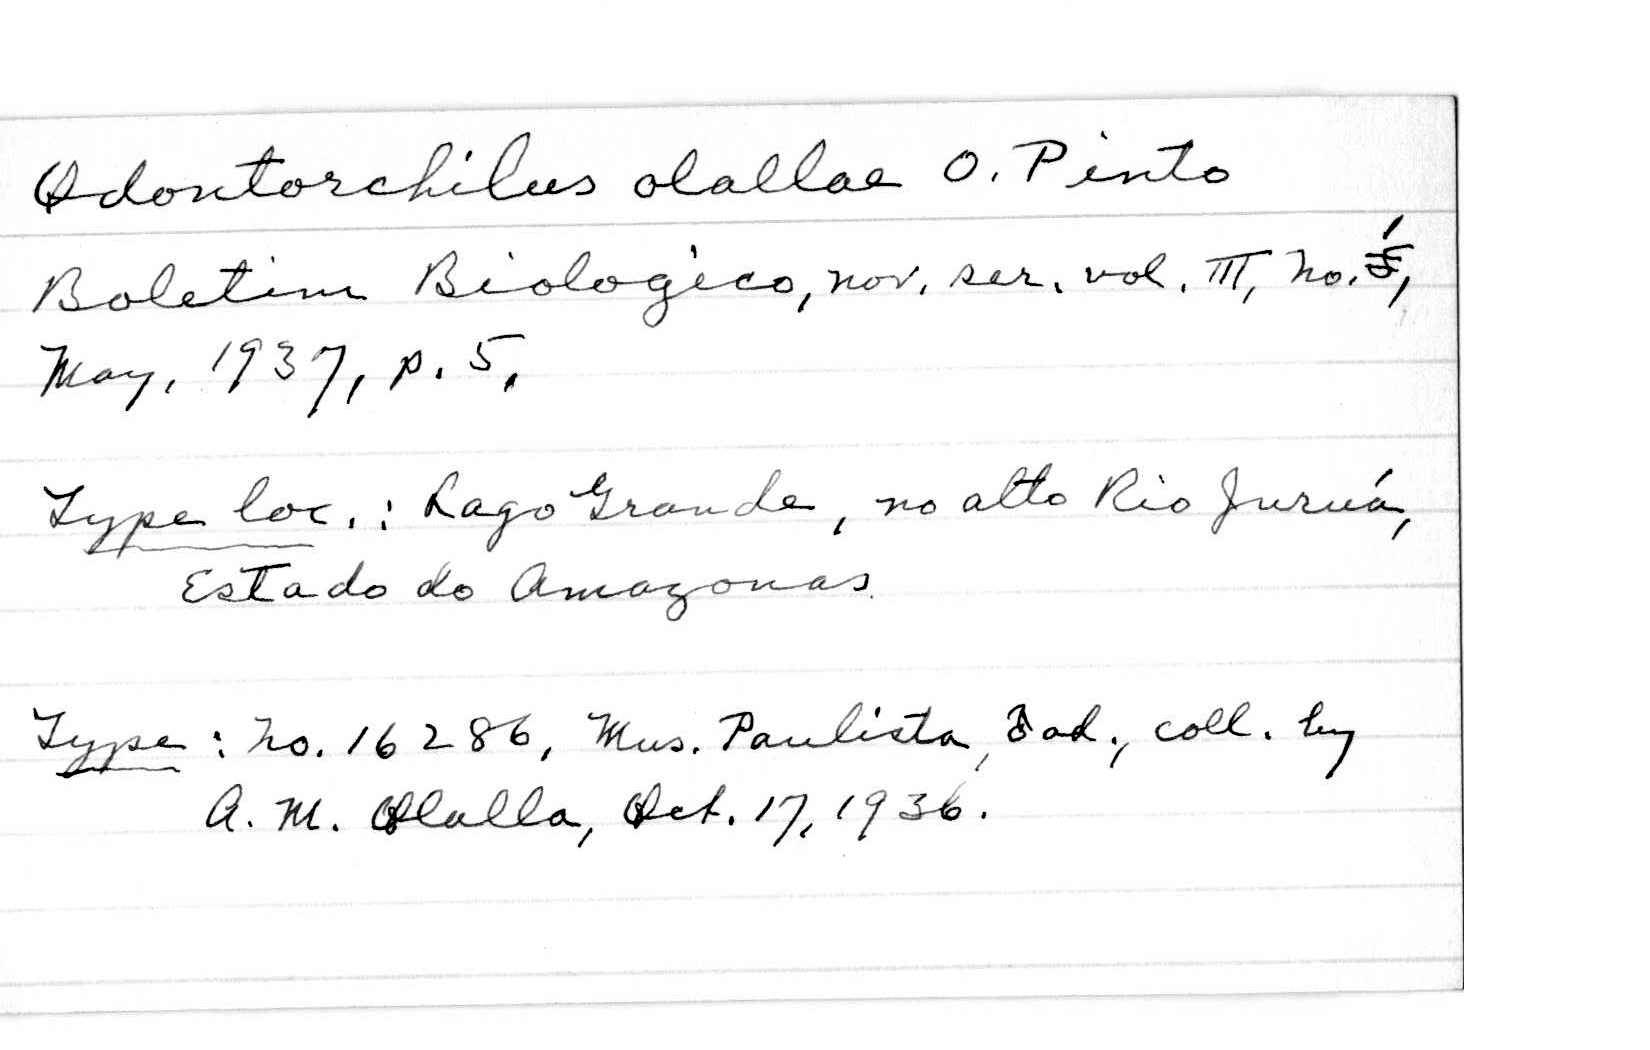 Odontorchilus olallae O. Pinto
Boletim Biologico, nov. ser. vol. III, no.
May, 1937, p. 5.
Type loc. : Lago Grande, no alto Rio Juruá,
Estado do Amazonas.
Type : no. 16286, Mus. Paulista, ♂ ad., coll. by
A. M. Olalla, Oct. 17, 1936.